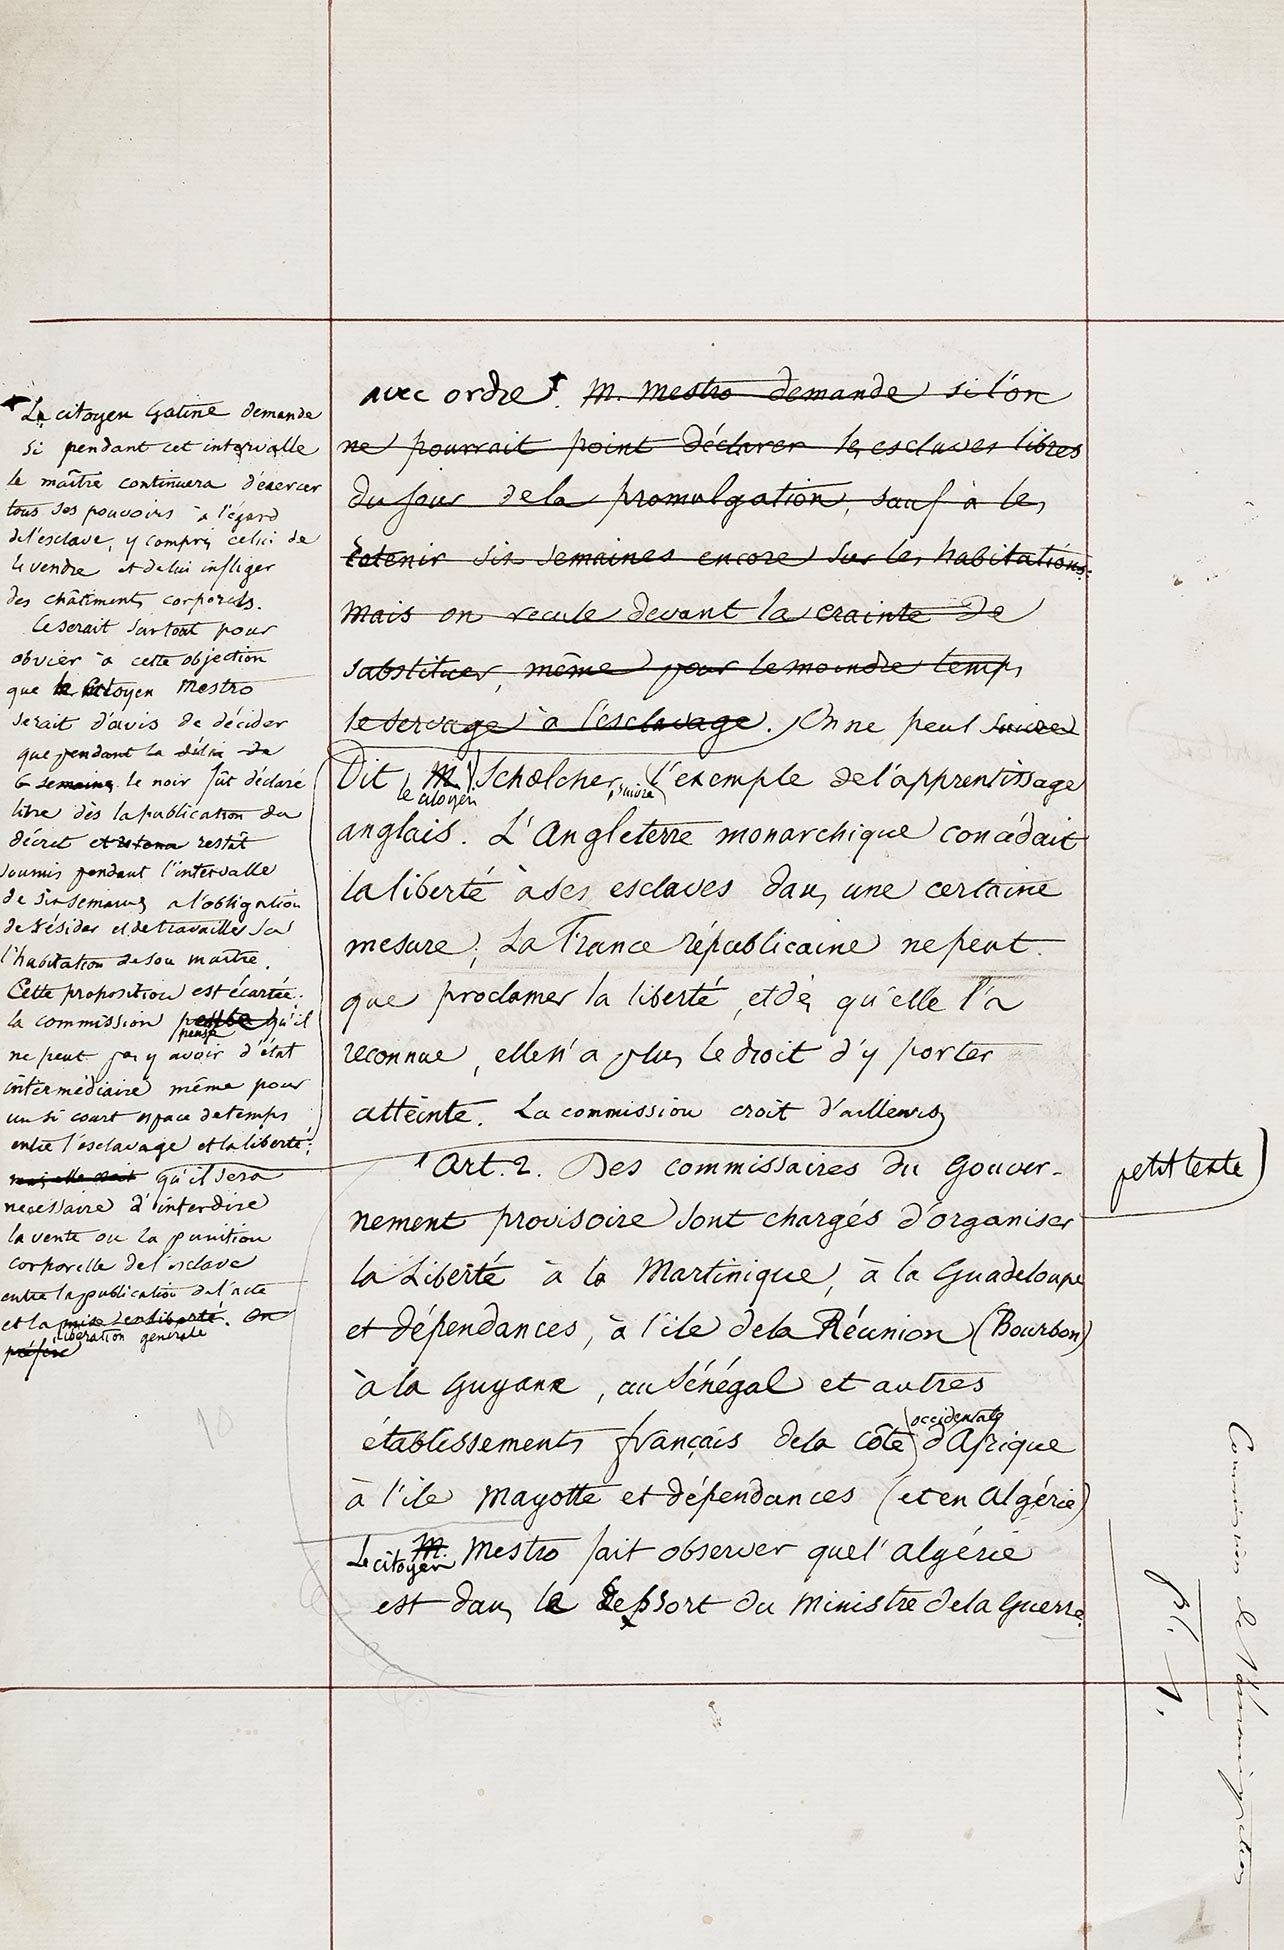 avec ordre. M. Mestro demande si l'on
ne pourrait point déclarer les esclaves libres
du jour de la promulgation, sauf à les
retenir six semaines encore sur les habitations.
Mais on recule devant la crainte de
substituer, même pour le moindre temps,
le servage à l'esclavage. On ne peut suivre
Dit M. Schœlcher, suivre l'exemple de l'apprentissage
le citoyen
anglais. L'Angleterre monarchique concédait
la liberté à ses esclaves dans une certaine
mesure; La France républicaine ne peut
que proclamer la liberté, et dès qu'elle l'a
reconnue, elle n'a plus le droit d'y porter
atteinte. La commission croit d'ailleurs
Art. 2. Des commissaires du Gouver-
nement provisoire sont chargés d'organiser
la Liberté à la Martinique, à la Guadeloupe
et dépendances, à l'ile de la Réunion (Bourbon)
à la Guyane, au Sénégal et autres
occidentale
établissements français de la côte d'Afrique
à l'ile Mayotte et dépendances (et en Algérie)
Le citoyen M. Mestro fait observer que l'Algérie
est dans le ressort du Ministre de la Guerre.
Le citoyen Gatine demande
si pendant cet intervalle
le maître continuera d'éxercer
tous ses pouvoirs à l'égard
de l'esclave, y compris celui de
le vendre et de lui infliger
des châtiments corporels.
Ce serait surtout pour
obvier à cette objection
que le citoyen Mestro
serait d'avis de décider
que pendant le délai de
6 semaines le noir fût déclaré
libre dès la publication du
décret et restât
soumis pendant l'intervalle
de six semaines a l'obligation
de résider et de travailler sur
l'habitation de son maître.
Cette proposition est écartée:
la commission pense qu'il
pense
ne peut pas y avoir d'état
intermédiaire même pour
un si court espace de temps
entre l'esclavage et la liberté;
mais elle croit qu'il sera
necessaire d'interdire
la vente ou la punition
corporelle de l'esclave
entre la publication de l'acte
et la mise en liberté. On
libération generale
préfère
petit texte
Commission de l'émancipation
pl. 1.